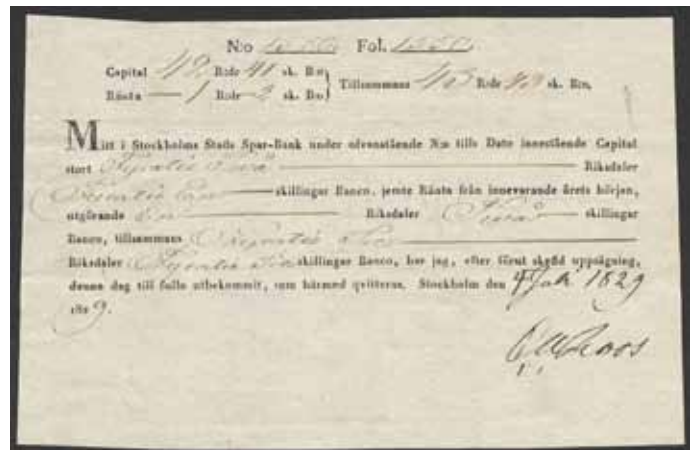 N:o 1550. Fol. 1550.
Capital 42 R:dr 41 sk. B:o
Ränta — 1 R:dr 2 sk. B:o } Tillsammans 43 R:dr 43 sk. B:co.
Mitt i Stockholms Stads Spar-Bank under ofvanstående N:o tills Date innestående Capital
stort Fyratio Två Riksdaler
Fyratio En skillingar Banco, jemte Ränta från innevarande årets början,
utgörande En Riksdaler Två skillingar
Banco, tillsammans Fyratio Tre
Riksdaler Fyratio Tre skillingar Banco, har jag, efter förut skedd uppsägning,
denna dag till fullo utbekommit, som härmed qvitteras. Stockholm den 1829
182 9.